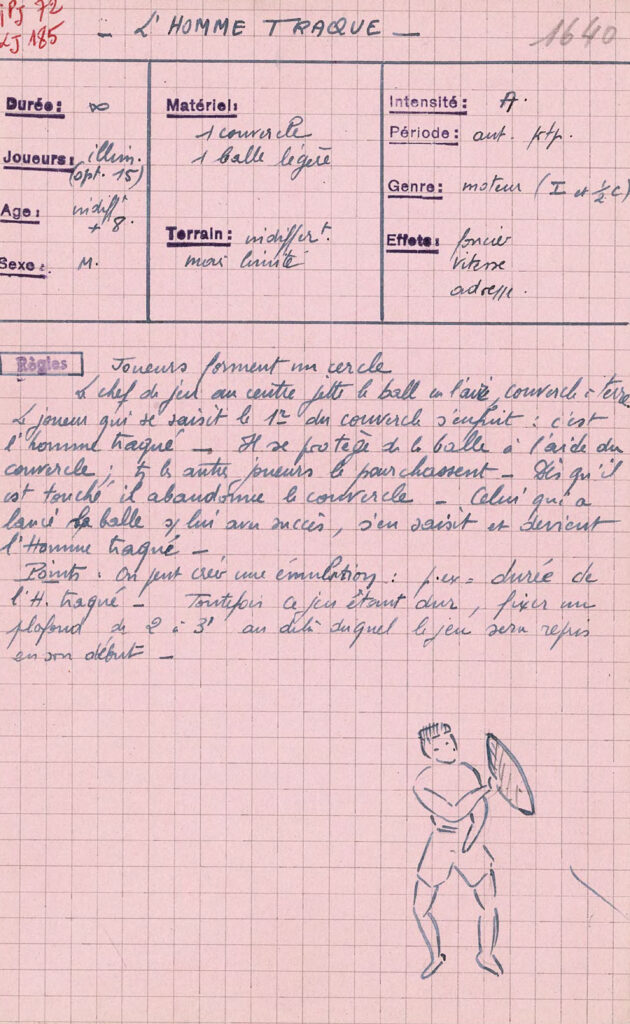 PJ 72
LJ 185
- L'HOMME TRAQUE -
1640
Durée : ∞
Joueurs : illim.
(opt. 15)
Age : indifft
+ 8.
Sexe : M.
Matériel :
1 couvercle
1 balle légère
Terrain : indiffert.
mais limité
Intensité : A.
Période : aut. ptp.
Genre : moteur (I et ½ C)
Effets : foncier
vitesse
adresse.
Règles Joueurs forment un cercle
Le chef de jeu au centre jette le ball en l'air, couvercle à terre
Le joueur qui se saisit le 1er du couvercle s'enfuit : c'est
l'homme traqué - Il se protège de la balle à l'aide du
couvercle ; ts les autres joueurs le pourchassent - Dès qu'il
est touché, il abandonne le couvercle - Celui qui a
lancé la balle s/ lui avec succès, s'en saisit et devient
l'Homme traqué -
Points : On peut créer une émulation : p.ex = durée de
l'H. traqué - Toutefois ce jeu étant dur, fixer un
plafond de 2 à 3' au delà duquel le jeu sera repris
en son début -